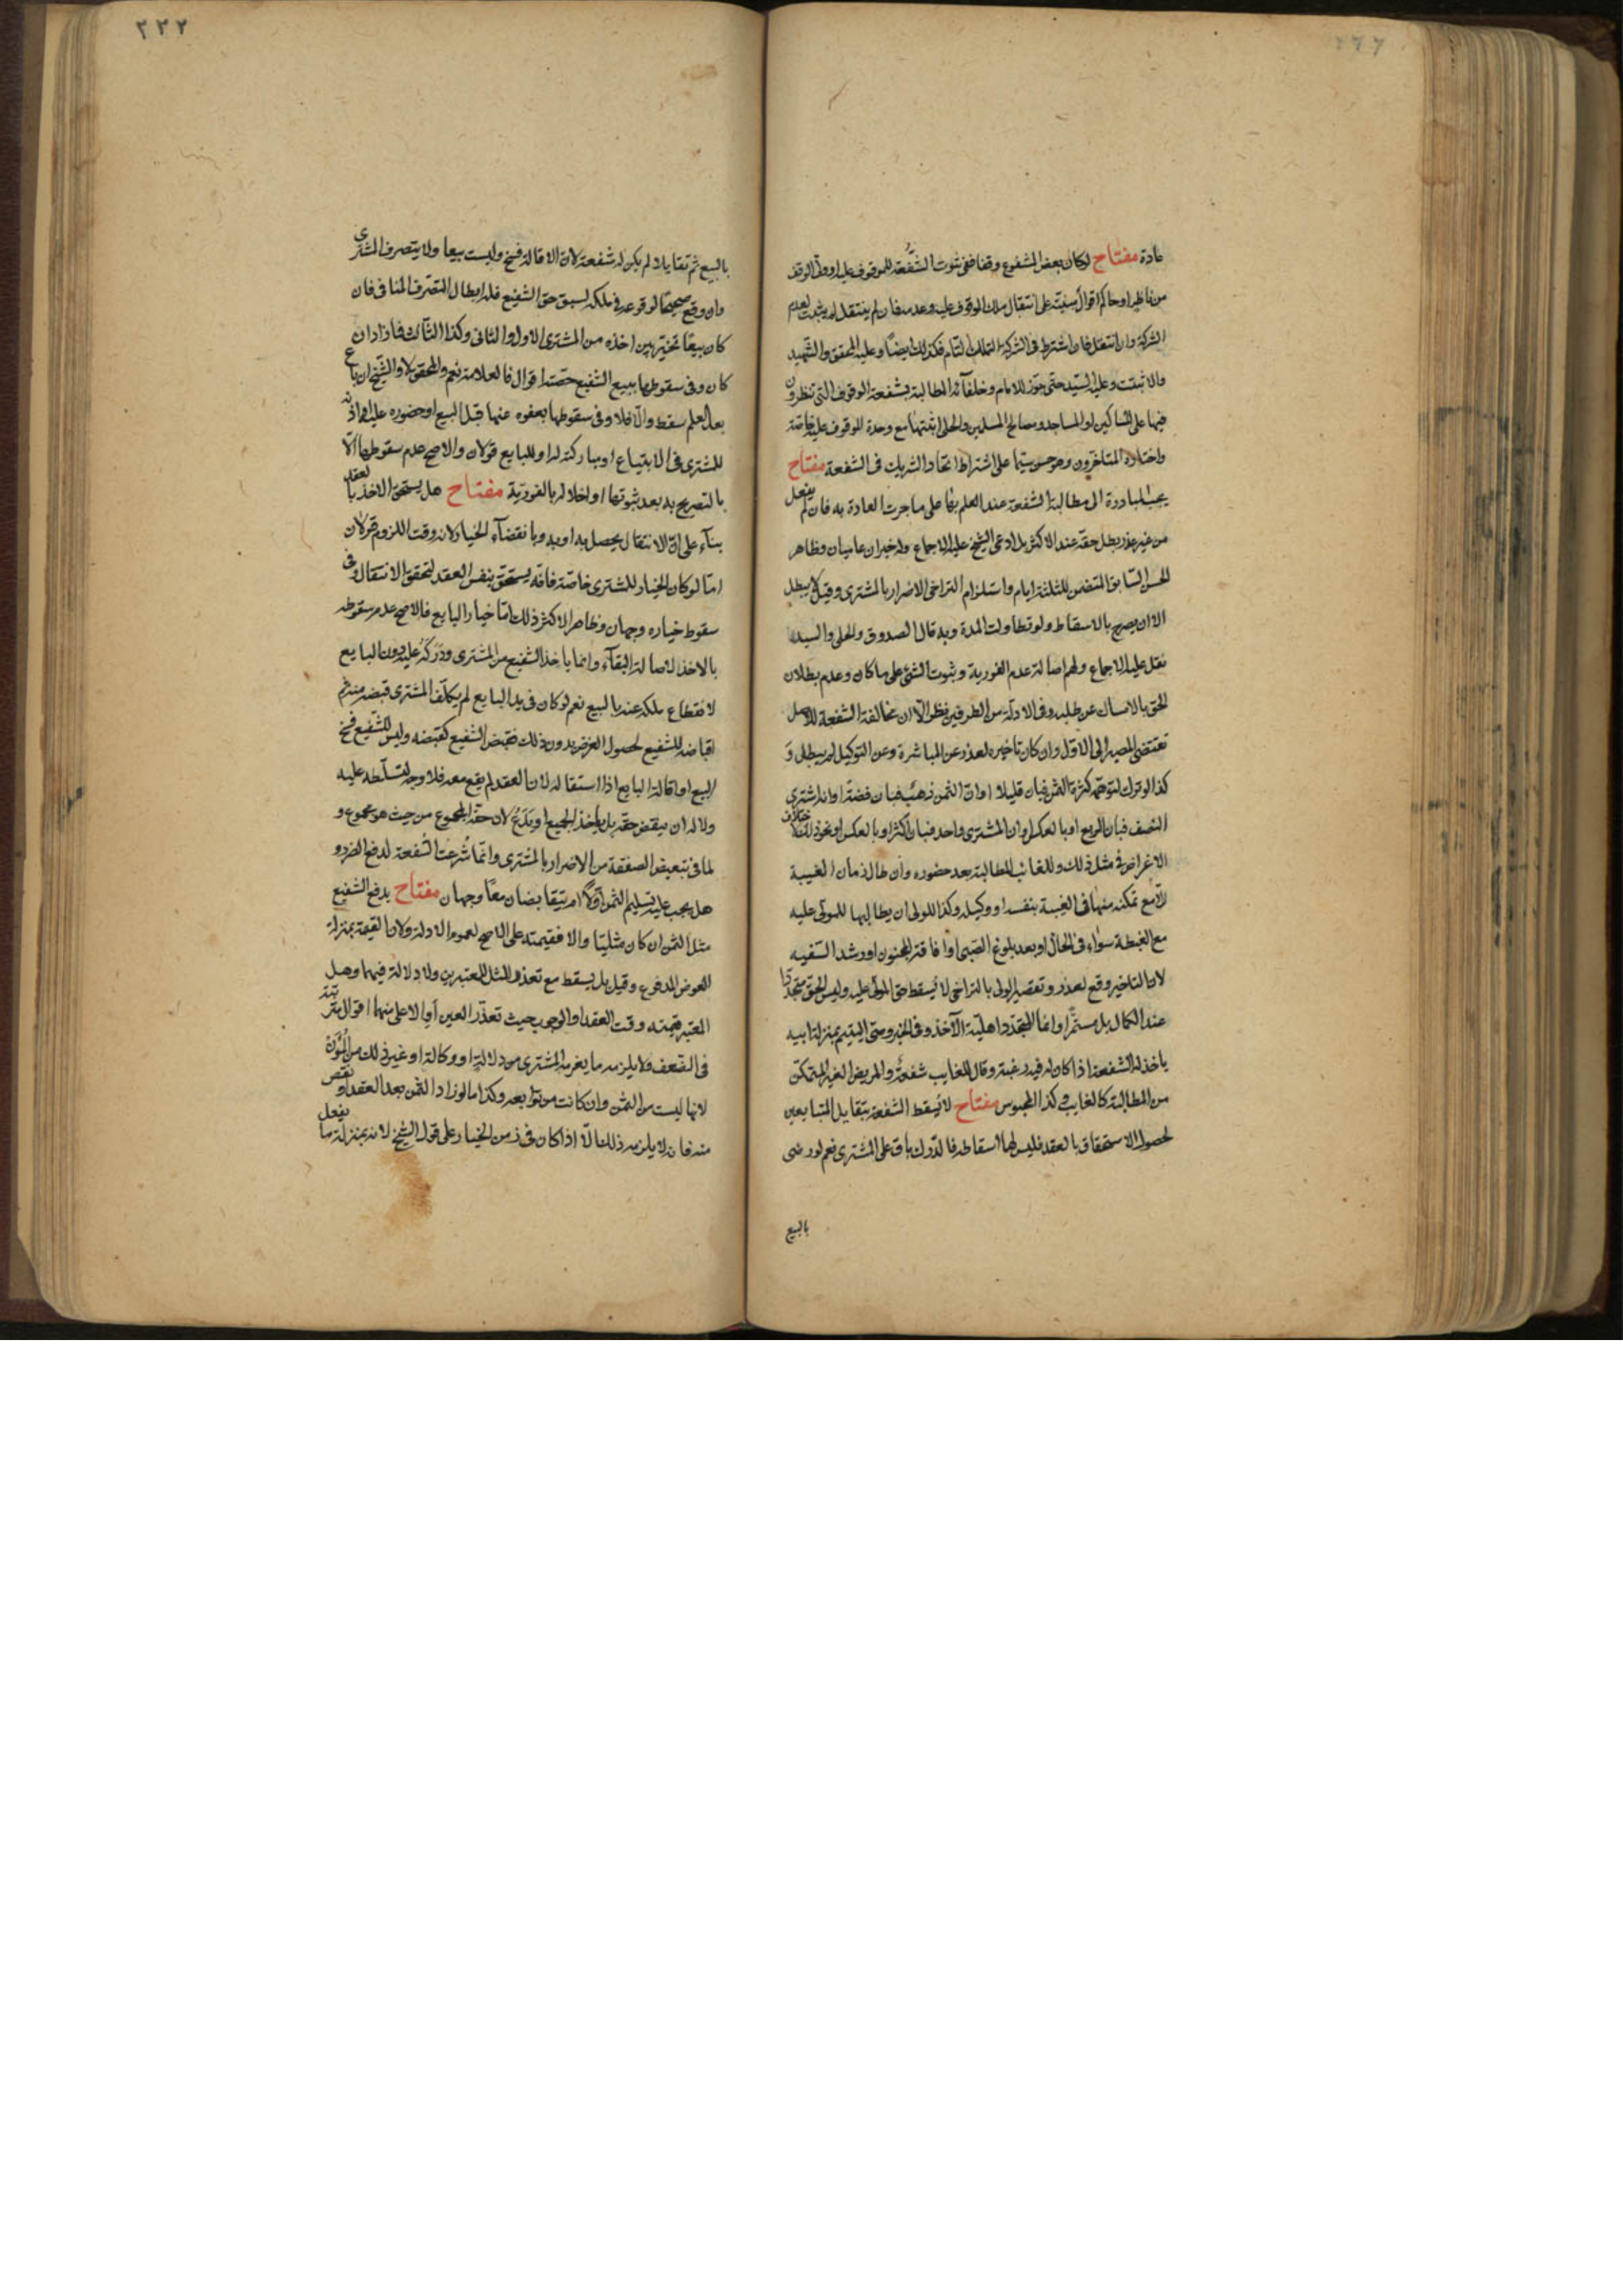 عادة مفتاح لو كان بعض المشفوع وقفا ففى ثبوت الشفعة للموقوف عليه او ولى الوقف
من ناظر او حاكم اقوال مبنية على انتقال ملك الموقوف عليه وعدمه فان لم ينتقل لم يثبت لعدم
الشركة وان انتقل فان اشترط فى الشركة التملك التام فكذلك ايضا وعليه المحقق والشهيد
والا ثبتت وعليه السيد حتى جوز للامام وخلفائه المطالبة بشفعة الوقوف التى ينظرون
فيها على المساكين او المساجد ومصالح المسلمين والحلى اثبتها مع وحدة الموقوف عليه خاصة
واختاره المتاخرون وهو حسن سيما على اشتراط اتحاد الشريك فى الشفعة مفتاح
يجب المبادرة الى مطالبة الشفعة عند العلم بها على ما جرت العادة به فان لم يفعل
من غير عذر بطل حقه عند الاكثر بل ادعى الشيخ عليه الاجماع وله خبران عاميان وظاهر
الحسن السابق المتضمن للثلثة ايام واستلزام التراخى الاضرار بالمشترى وقيل لا يبطل
الا ان يصرح بالاسقاط ولو تطاولت المدة وبه قال الصدوق والحلى والسيد
نقل عليه الاجماع ولهم اصالة عدم الفورية وثبوت الشئ على ما كان وعدم بطلان
الحق بالامساك عن طلبه وفى الادلة من الطرفين نظر الا ان مخالفة الشفعة للاصل
تقتضى المصير الى الاول وان كان تاخيره لعذر عن المباشرة وعن التوكيل لم يبطل و
كذا لو ترك لتوهمه كثرة الثمن فبان قليلا او ان الثمن ذهب فبان فضة او انه اشترى
النصف فبان الربع او بالعكس او ان المشترى واحد فبان اكثر او بالعكس او نحو ذلك لاختلاف
الاغراض فى مثل ذلك وللغائب المطالبة بعد حضوره وان طال زمان الغيبة
الا مع تمكنه منها فى الغيبة بنفسه او وكيله وكذا للولى ان يطالبها للمولى عليه
مع الغبطة سواء فى الحال او بعد بلوغ الصبى او افاقة المجنون او رشد السفيه
لان التاخير وقع لعذر وتقصير الولى بالتراخى لا يسقط حق المولى عليه وليس الحق متجددا
عند الكمال بل مستمرا وانما المتجدد اهلية الآخذ وفى الخبر وصى اليتيم بمنزلة ابيه
ياخذ له الشفعة اذا كان له فيه رغبة وقال للغايب شفعة والمريض الغير المتمكن
من المطالبة كالغايب وكذا المحبوس مفتاح لا يسقط الشفعة بتقايل المتبايعين
لحصول الاستحقاق بالعقد فليس لهما اسقاطه فالدرك باق على المشترى نعم لو رضى
بالبيع
٢٢٢
بالبيع ثم تقايلا لم يكن له شفعة لان الاقالة فسخ وليست بيعا ولا يتصرف المشترى
وان وقع صحيحا لوقوعه فى ملكه لسبق حق الشفيع فله ابطال التصرف المنافى فان
كان بيعا تخير بين اخذه من المشترى الاول والثانى وكذا الثالث فازاد ان
كان وفى سقوطها ببيع الشفيع حصته اقوال فالعلامة نعم والمحقق لا والشيخ ان باع
بعد العلم سقط والا فلا وفى سقوطها بعفوه عنها قبل البيع او حضوره عليه او اذنه
للمشترى فى الابتياع او مباركته له او للبايع قولان والاصح عدم سقوطها الا
بالتصريح به بعد ثبوتها او اخلاله بالفورية مفتاح هل يستحق الاخذ بالعقد
بناء على ان الانتقال يحصل به او به وبانقضاء الخيار لانه وقت اللزوم قولان
اما لو كان الخيار للمشترى خاصة فانه يستحق بنفس العقد لتحقق الانتقال وفى
سقوط خياره وجهان وظاهر الاكثر ذلك اما خيار البايع فالاصح عدم سقوطه
بالاخذ لاصالة البقاء وانما ياخذ الشفيع من المشترى ودركه عليه دون البايع
لانقطاع ملكه عنه بالبيع نعم لو كان فى يد البايع لم يكلف المشترى قبضه منه ثم
اقباضه للشفيع لحصول الغرض بدون ذلك فقبض الشفيع كقبضه وليس للشفيع فسخ
البيع او اقالة البايع اذا استقاله لان العقد لم يقع معه فلا وجه لتسلطه عليه
ولا له ان يبعض حقه بل ياخذ الجميع او يدع لان حقه المجموع من حيث هو مجموع و
لما فى تبعيض الصفقة من الاضرار بالمشترى وانما شرعت الشفعة لدفع الضرر و
هل يجب عليه تسليم الثمن اولا ام يتقابضان معا وجهان مفتاح يدفع الشفيع
مثل الثمن ان كان مثليا والا فقيمته على الاصح لعموم الادلة ولان القيمة بمنزلة
العوض المدفوع وقيل بل يسقط مع تعذر المثل للمعتبرين ولا دلالة فيهما وهل
المعتبر قيمته وقت العقد او الوجوب حيث تعذر العين او الاعلى منهما اقوال مترتبة
فى الضعف ولا يلزمه ما يغرمه المشترى من دلالة او وكالة او غير ذلك من المؤن
لانها ليست من الثمن وان كانت من توابعه وكذا ما لو زاد الثمن بعد العقد او نقص
منه فانه لا يلزمه ذلك الا اذا كان فى زمن الخيار على قول الشيخ لانه بمنزلة ما يفعل